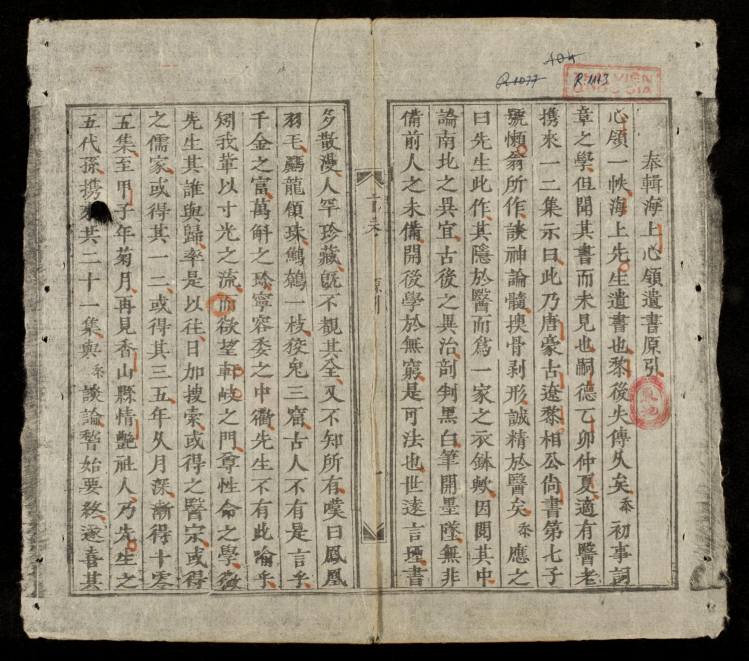 R.1077
R.1113
奉輯海上心領遺書原引
心領一帙海上先生遺書也黎後失傳久矣忝初事詞
章之學但聞其書而未見也嗣德乙卯仲夏適有醫老
携來一二集示曰此乃唐豪古遼黎相公尚書第七子
號懶翁所作談神論髓換骨剥形誠精於醫矣忝應之
曰先生此作其隱於醫而爲一家之衣鉢歟因閱其中
論南北之異宜古後之異治剖判黑白筆開墨墜無非
備前人之未備開後學於無窮是可法也世遠言堙書
多散漫人罕珍藏旣不覩其全又不知所有嘆曰鳳凰
羽毛驪龍頷珠鷦鷯一枝狡兔三窟古人不有是言乎
千金之富萬斛之珍寧容委之中衢先生不有此喻乎
矧我輩以寸光之流而欲望軒岐之門尊性命之學微
先生其誰與歸率是以往日加搜索或得之醫宗或得
之儒家或得其一二或得其三五年久月深漸得十零
五集至甲子年菊月再見香山縣情艷社人乃先生之
五代孫携來共二十一集與忝談論暫始要終遂喜其